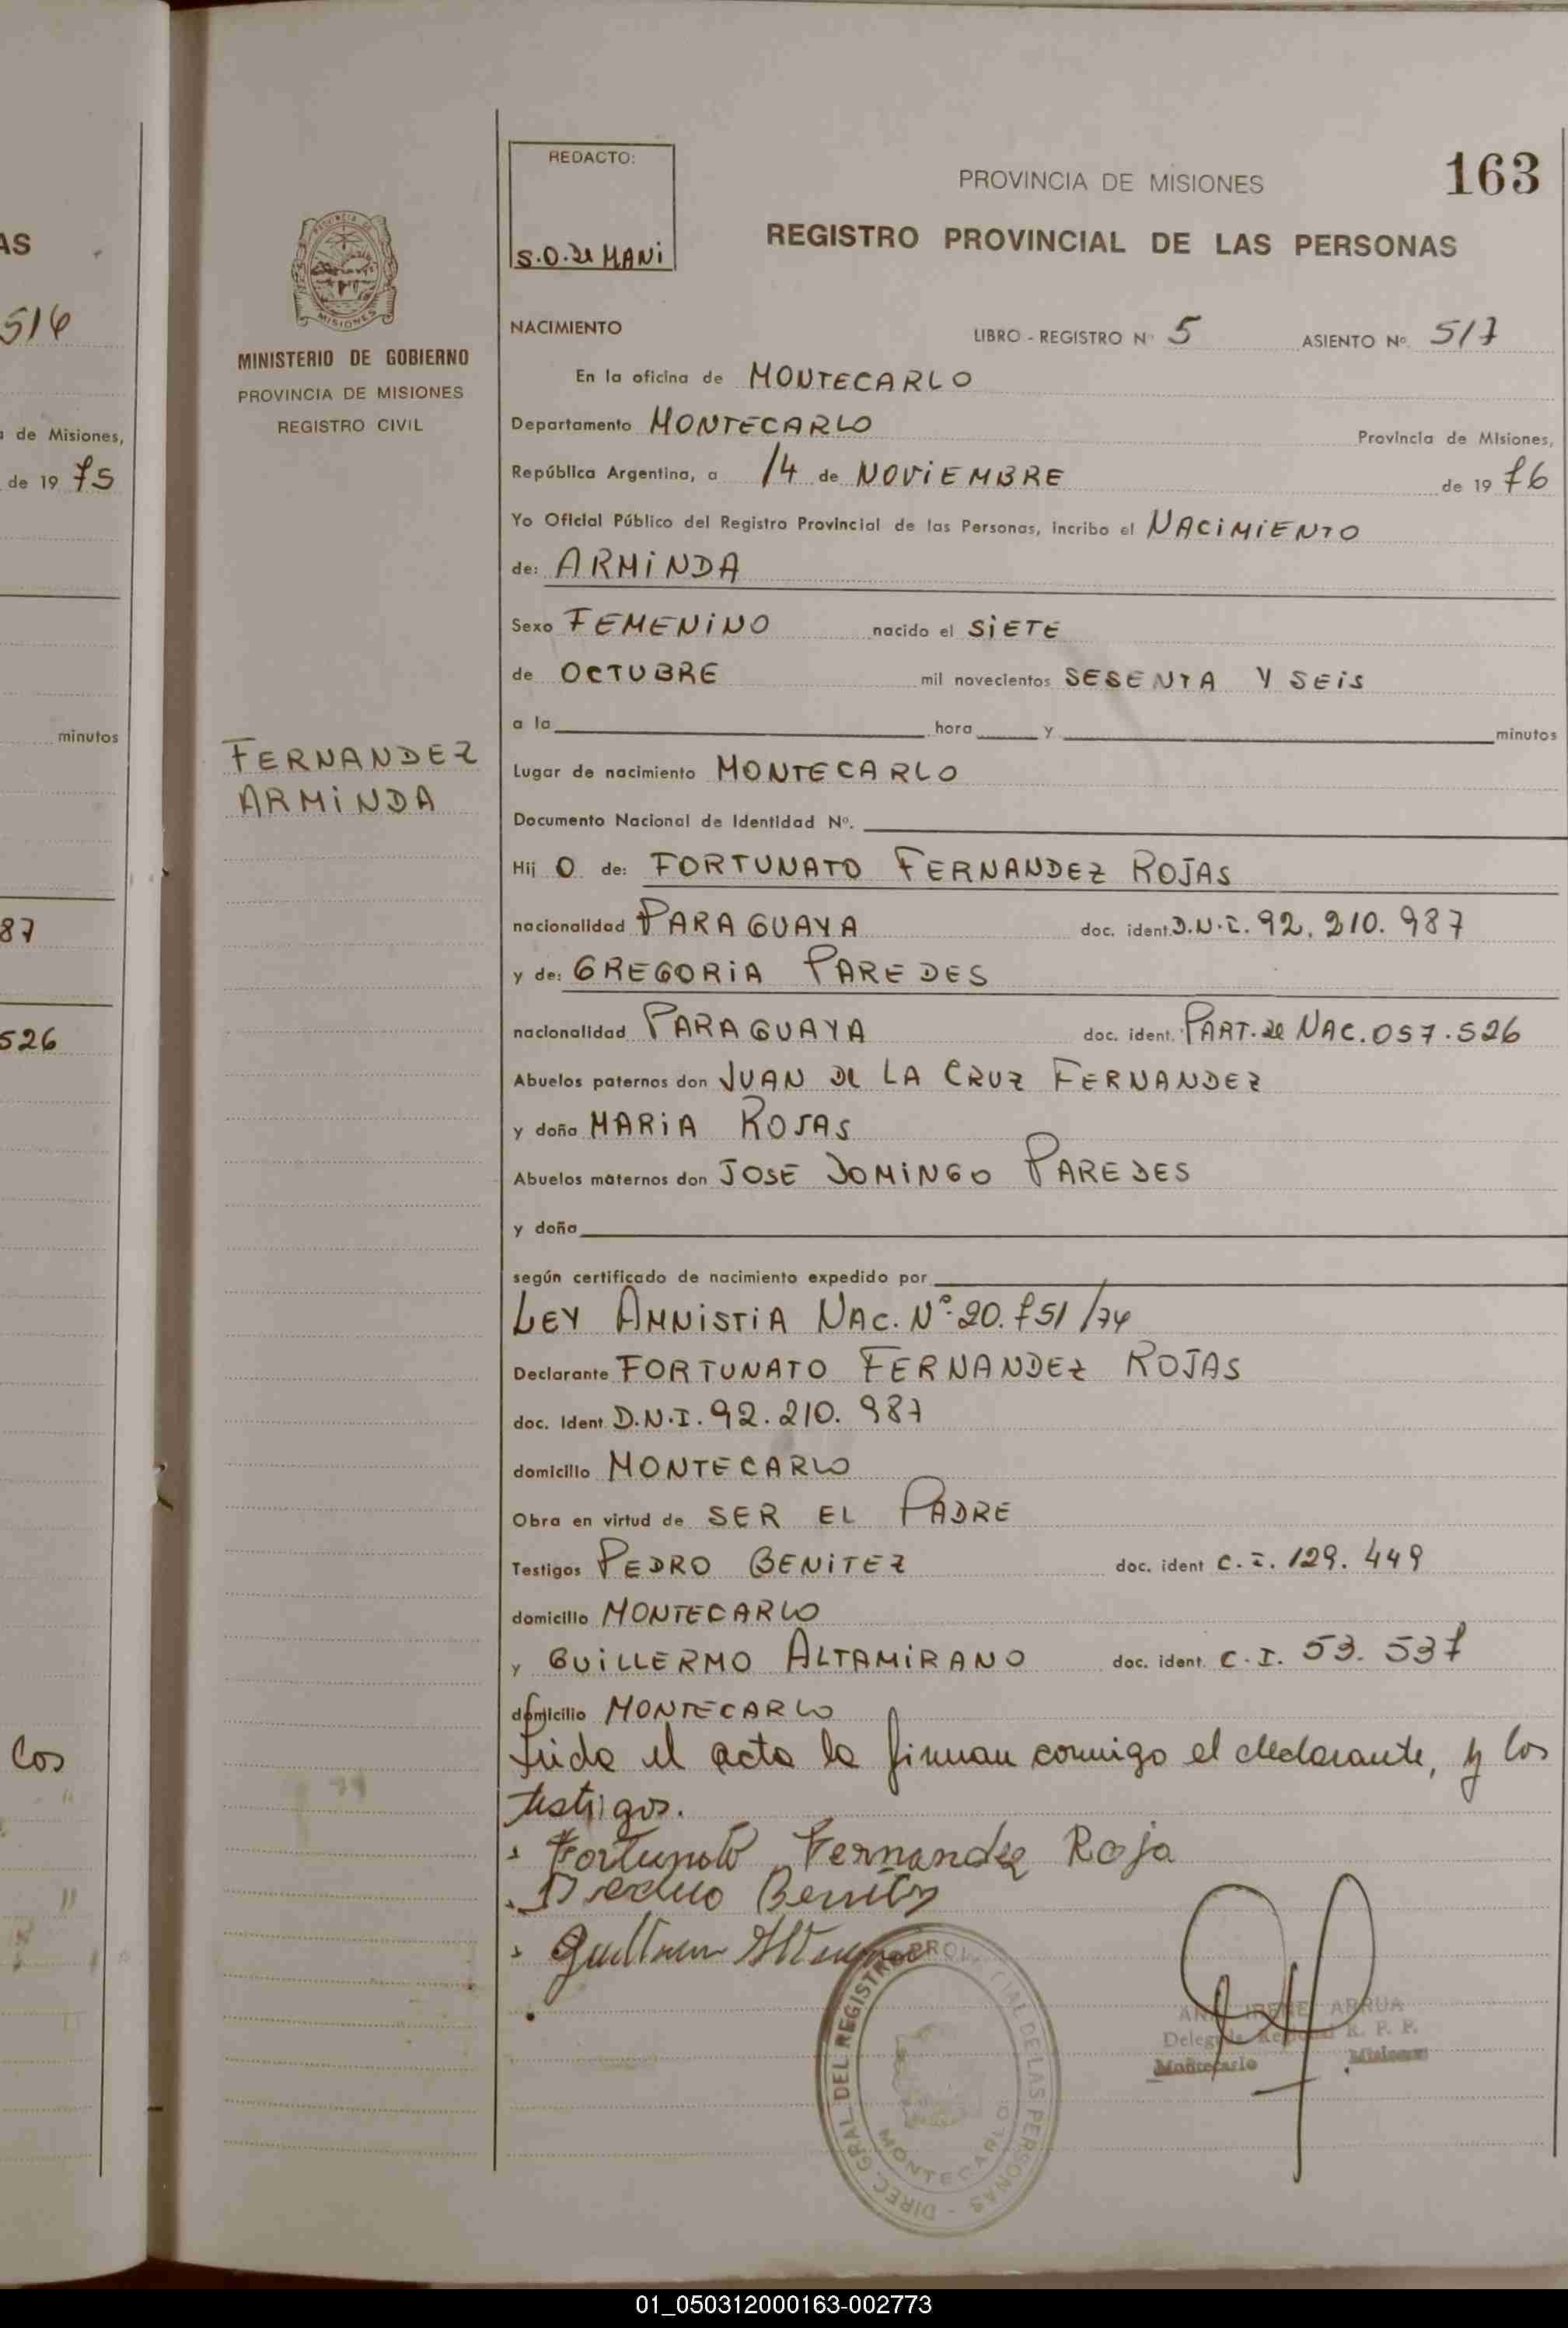 AS
516
de Misiones,
de 19 75
minutos
87
526
los
MINISTERIO DE GOBIERNO
PROVINCIA DE MISIONES
REGISTRO CIVIL
FERNANDEZ
ARMINDA
REDACTO:
S.O. de MANI
PROVINCIA DE MISIONES
163
REGISTRO PROVINCIAL DE LAS PERSONAS
NACIMIENTO LIBRO - REGISTRO Nº 5 ASIENTO Nº 517
En la oficina de MONTECARLO
Departamento MONTECARLO Provincia de Misiones,
República Argentina, a 14 de NOVIEMBRE de 19 76
Yo Oficial Público del Registro Provincial de las Personas, incribo el NACIMIENTO
de: ARMINDA
Sexo FEMENINO nacido el SIETE
de OCTUBRE mil novecientos SESENTA Y SEIS
a la hora y minutos
Lugar de nacimiento MONTECARLO
Documento Nacional de Identidad Nº.
Hij O de: FORTUNATO FERNANDEZ ROJAS
nacionalidad PARAGUAYA doc. ident. D.N.I. 92.210.987
y de: GREGORIA PAREDES
nacionalidad PARAGUAYA doc. ident. PART. de NAC. 057.526
Abuelos paternos don JUAN DE LA CRUZ FERNANDEZ
y doña MARIA ROJAS
Abuelos maternos don JOSE DOMINGO PAREDES
y doña
según certificado de nacimiento expedido por
LEY AMNISTIA NAC. Nº 20.751/74
Declarante FORTUNATO FERNANDEZ ROJAS
doc. Ident. D.N.I. 92.210.987
domicilio MONTECARLO
Obra en virtud de SER EL PADRE
Testigos PEDRO BENITEZ doc. ident C.I. 129.449
domicilio MONTECARLO
y GUILLERMO ALTAMIRANO doc. ident. C.I. 53.537
domicilio MONTECARLO
Leida el acta la firman conmigo el declarante, y los
testigos.
Fortunato Fernandez Roja
Benitez
DIREC. GRAL. DEL REGISTRO PROVINCIAL DE LAS PERSONAS
MONTECARLO
ANA IRENE ARRUA
Delegada Regional R. P. P.
Montecarlo Misiones
01_050312000163-002773